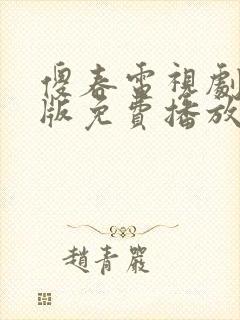 傻春雷視劇
版免費播放
趙青嚴